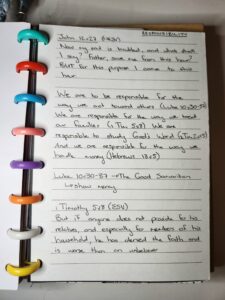 RESPONSIBILITY
John 12:27
Now my soul is troubled, and what shall
I say? Father, save me from this hour?
BUT for this purpose I came to this
hour.
We are to be responsible for the
way we act toward others (Luke 10:30-37
We are responsible for the way we treat
our families (1 Tim 5:8) We are
responsible to study God's Word (2 Tim 2:15)
And we are responsible for the way we
handle money (Hebrews 13:5)
Luke 10:30-37 → The Good Samaritan
show mercy
1 Timothy 5:8 (ESV)
But if anyone does not provide for his
relatives, and especially for members of his
household, he has denied the faith and
is worse than an unbeliever